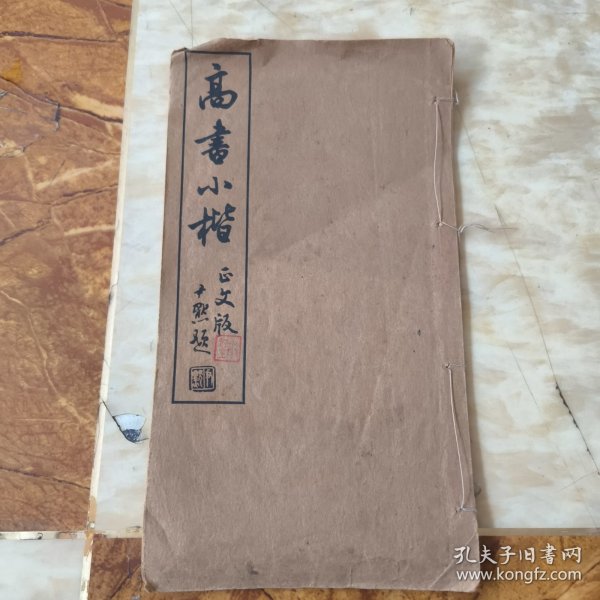 高書小楷
正文版
尹默题
孔夫子旧書网
www.kongfz.com